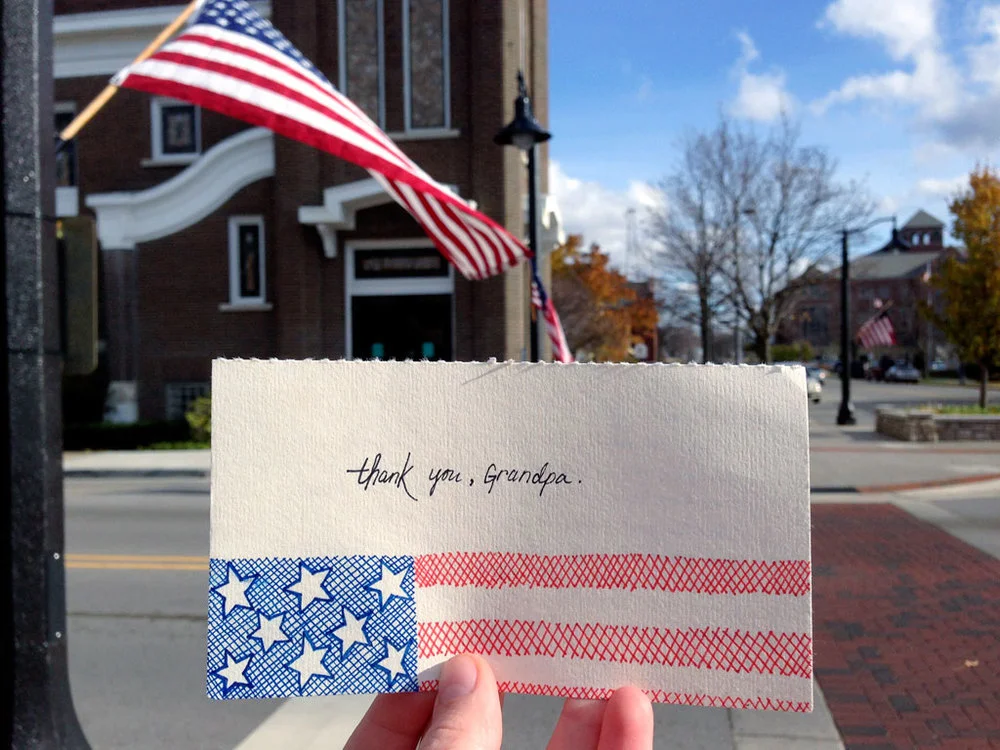 thank you, Grandpa.